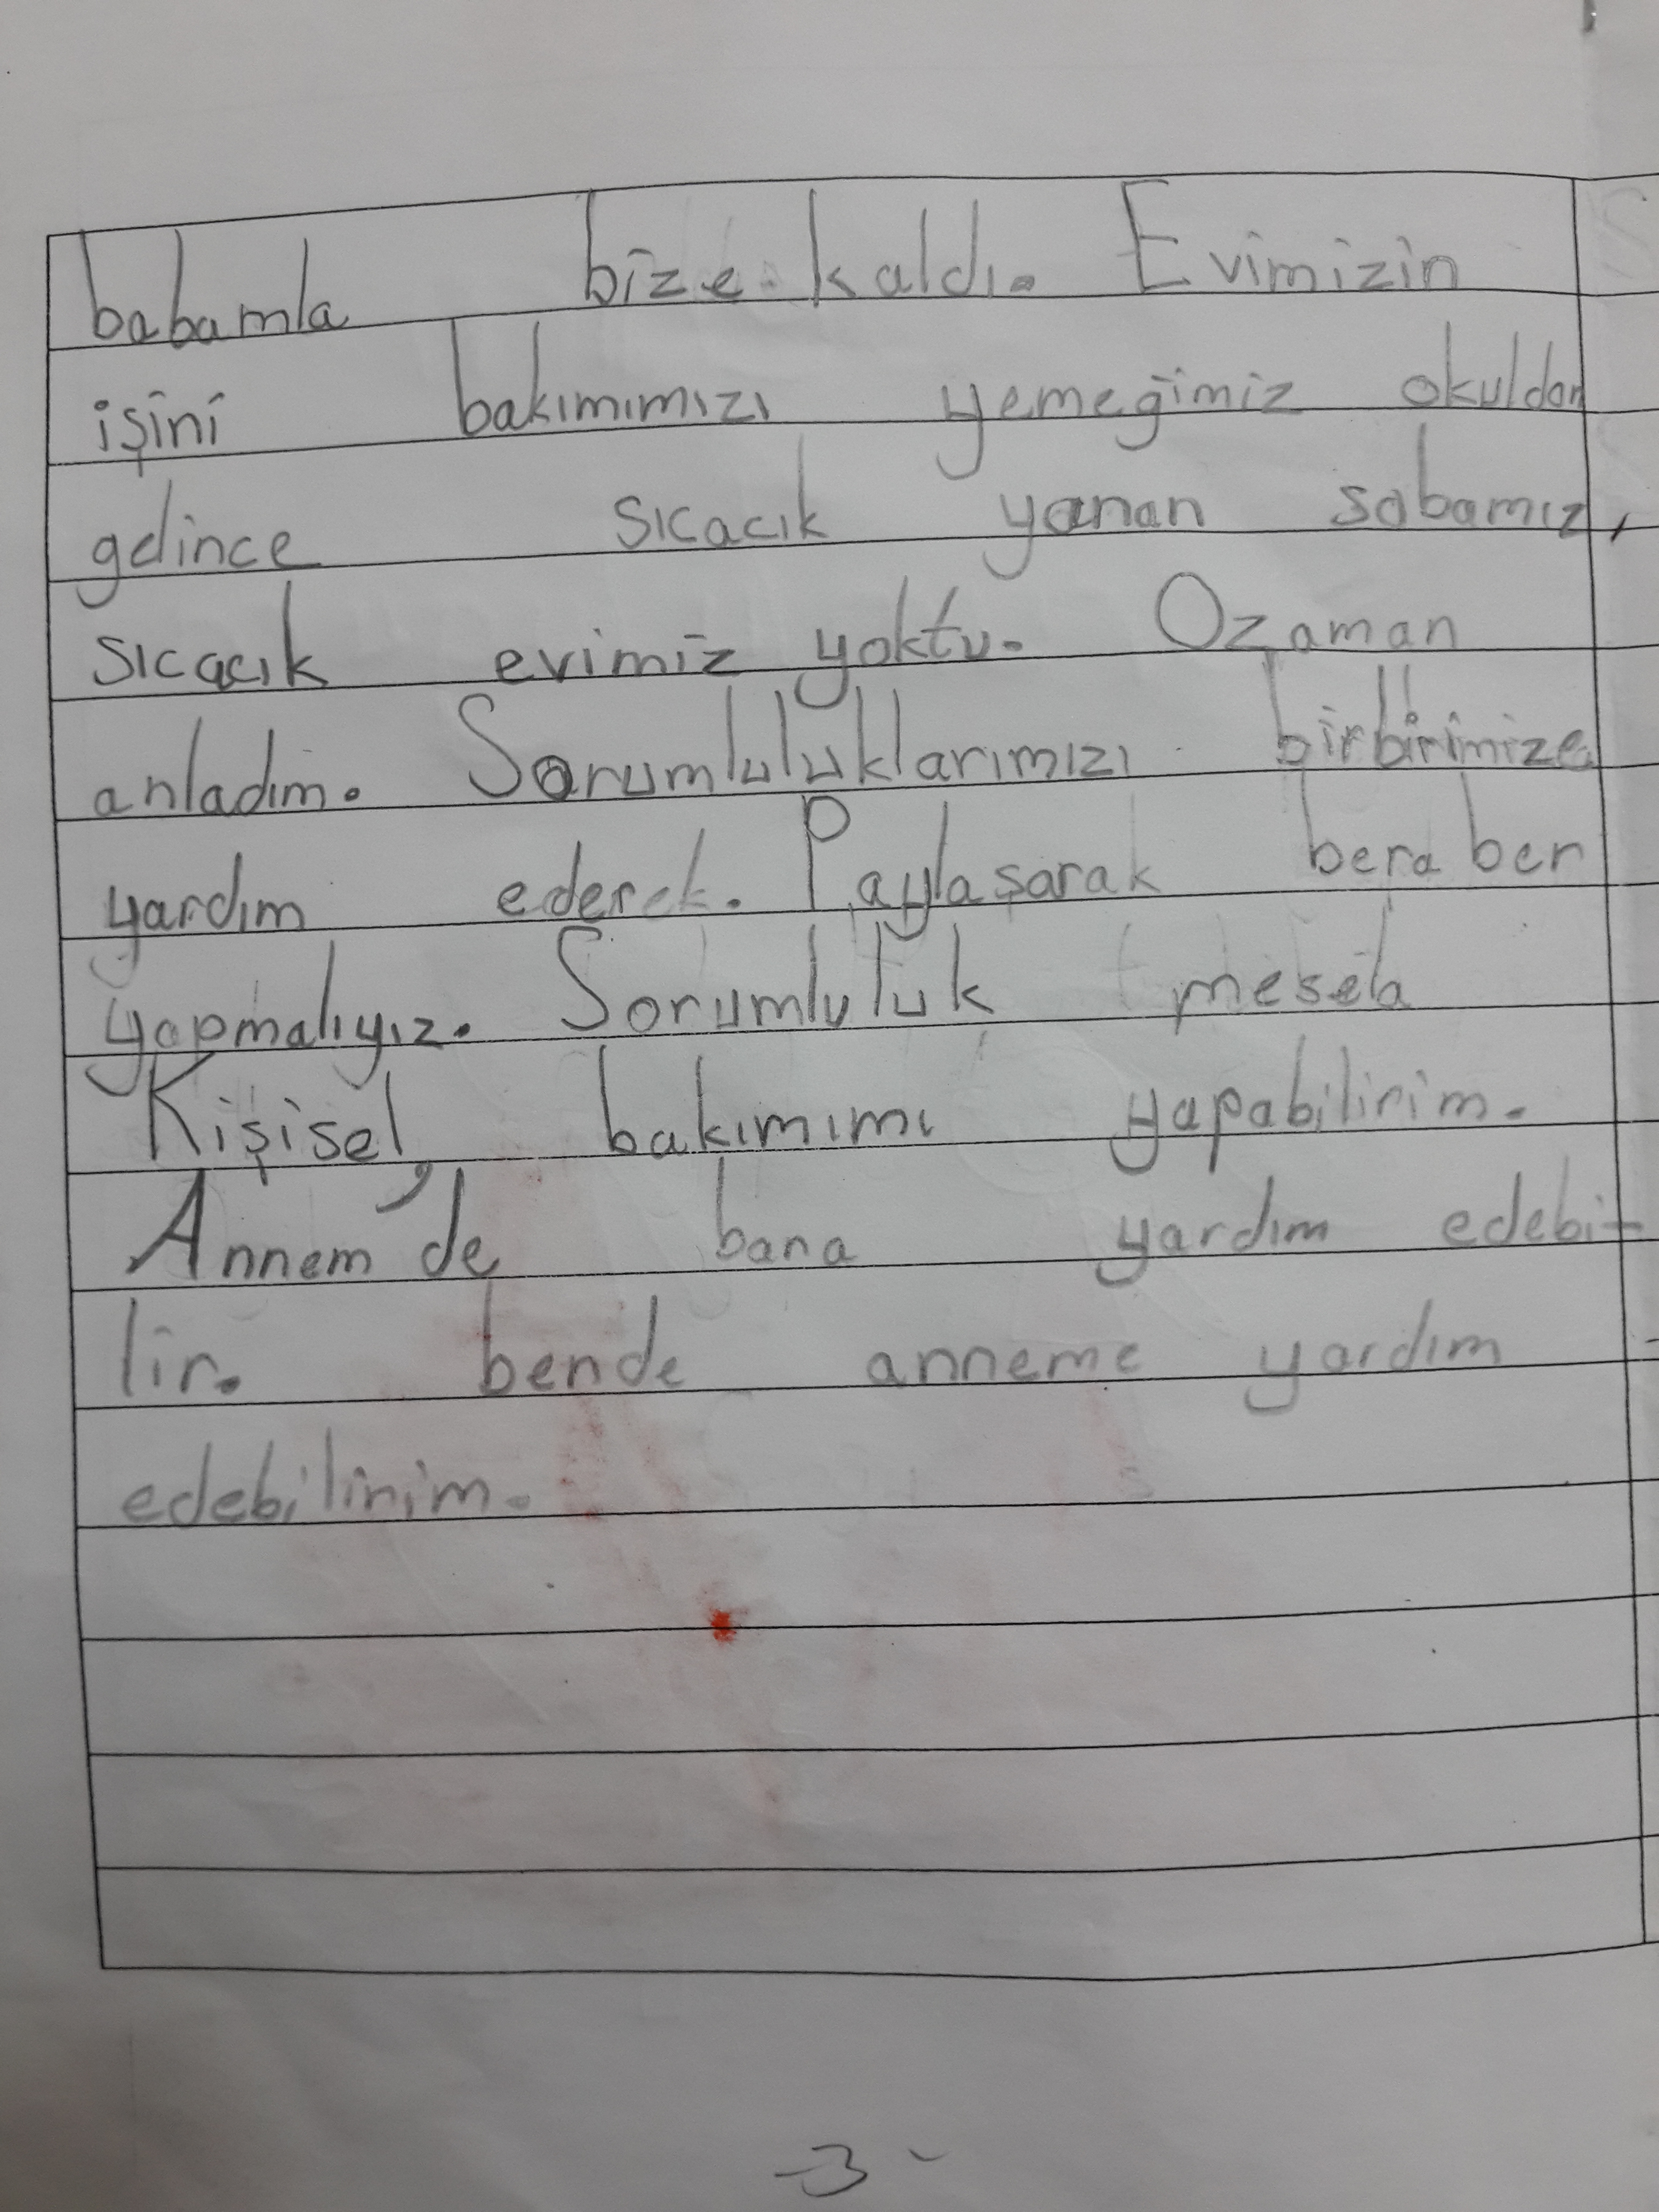 babamla bize kaldı. Evimizin
işini bakımımızı yemeğimiz okuldan
gelince sıcacık yanan sobamız,
sıcacık evimiz yoktu. Ozaman
anladım. Sorumluluklarımızı birbirimize
yardım ederek. Paylaşarak beraber
yapmalıyız. Sorumluluk mesela
Kişisel bakımımı yapabilirim.
Annem'de bana yardım edebi-
lir. bende anneme yardım
edebilirim.
-3-